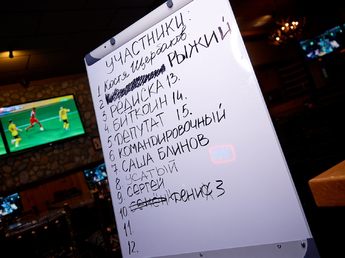 УЧАСТНИКИ:
1. Костя Щербаков
2. РЫЖИЙ
3. РЕДИСКА 13.
4. БИТКОИН 14.
5. ДЕПУТАТ 15.
6. КОМАНДИРОВОЧНЫЙ
7. САША БЛИНОВ
8. УСАТЫЙ
9. СЕРГЕЙ
10. ДЕНИС 3
11.
12.